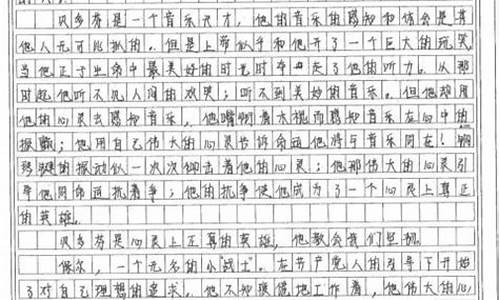 贝多芬是一个音乐天才，他的音乐的感知和体会是其
他人无可比拟的。但是上帝似乎和他开了一个巨大的玩笑，
当他正于生命中最美好的时光时夺走了他的听力。从那
时起他听不见人间的欢笑；听不到美妙的音乐。但他却用
他的心灵去感知音乐，他嘴咬着木棍而感知音乐在心中的
振颤；他用自己伟大的心灵告诉命运他将与音乐同在！钢
琴键的振动似一次次叩击着他的心灵；他那伟大的心灵引
导他同命运抗着争；他的抗争使他成为了一个心灵上真正
的英雄。
贝多芬是心灵上正真的英雄，他教会我们坚韧。
保尔，一个无名的小“战士”。在共产党人的引导下开始
了对自己理想的追求。他不知疲倦地工作着，他伟大的心